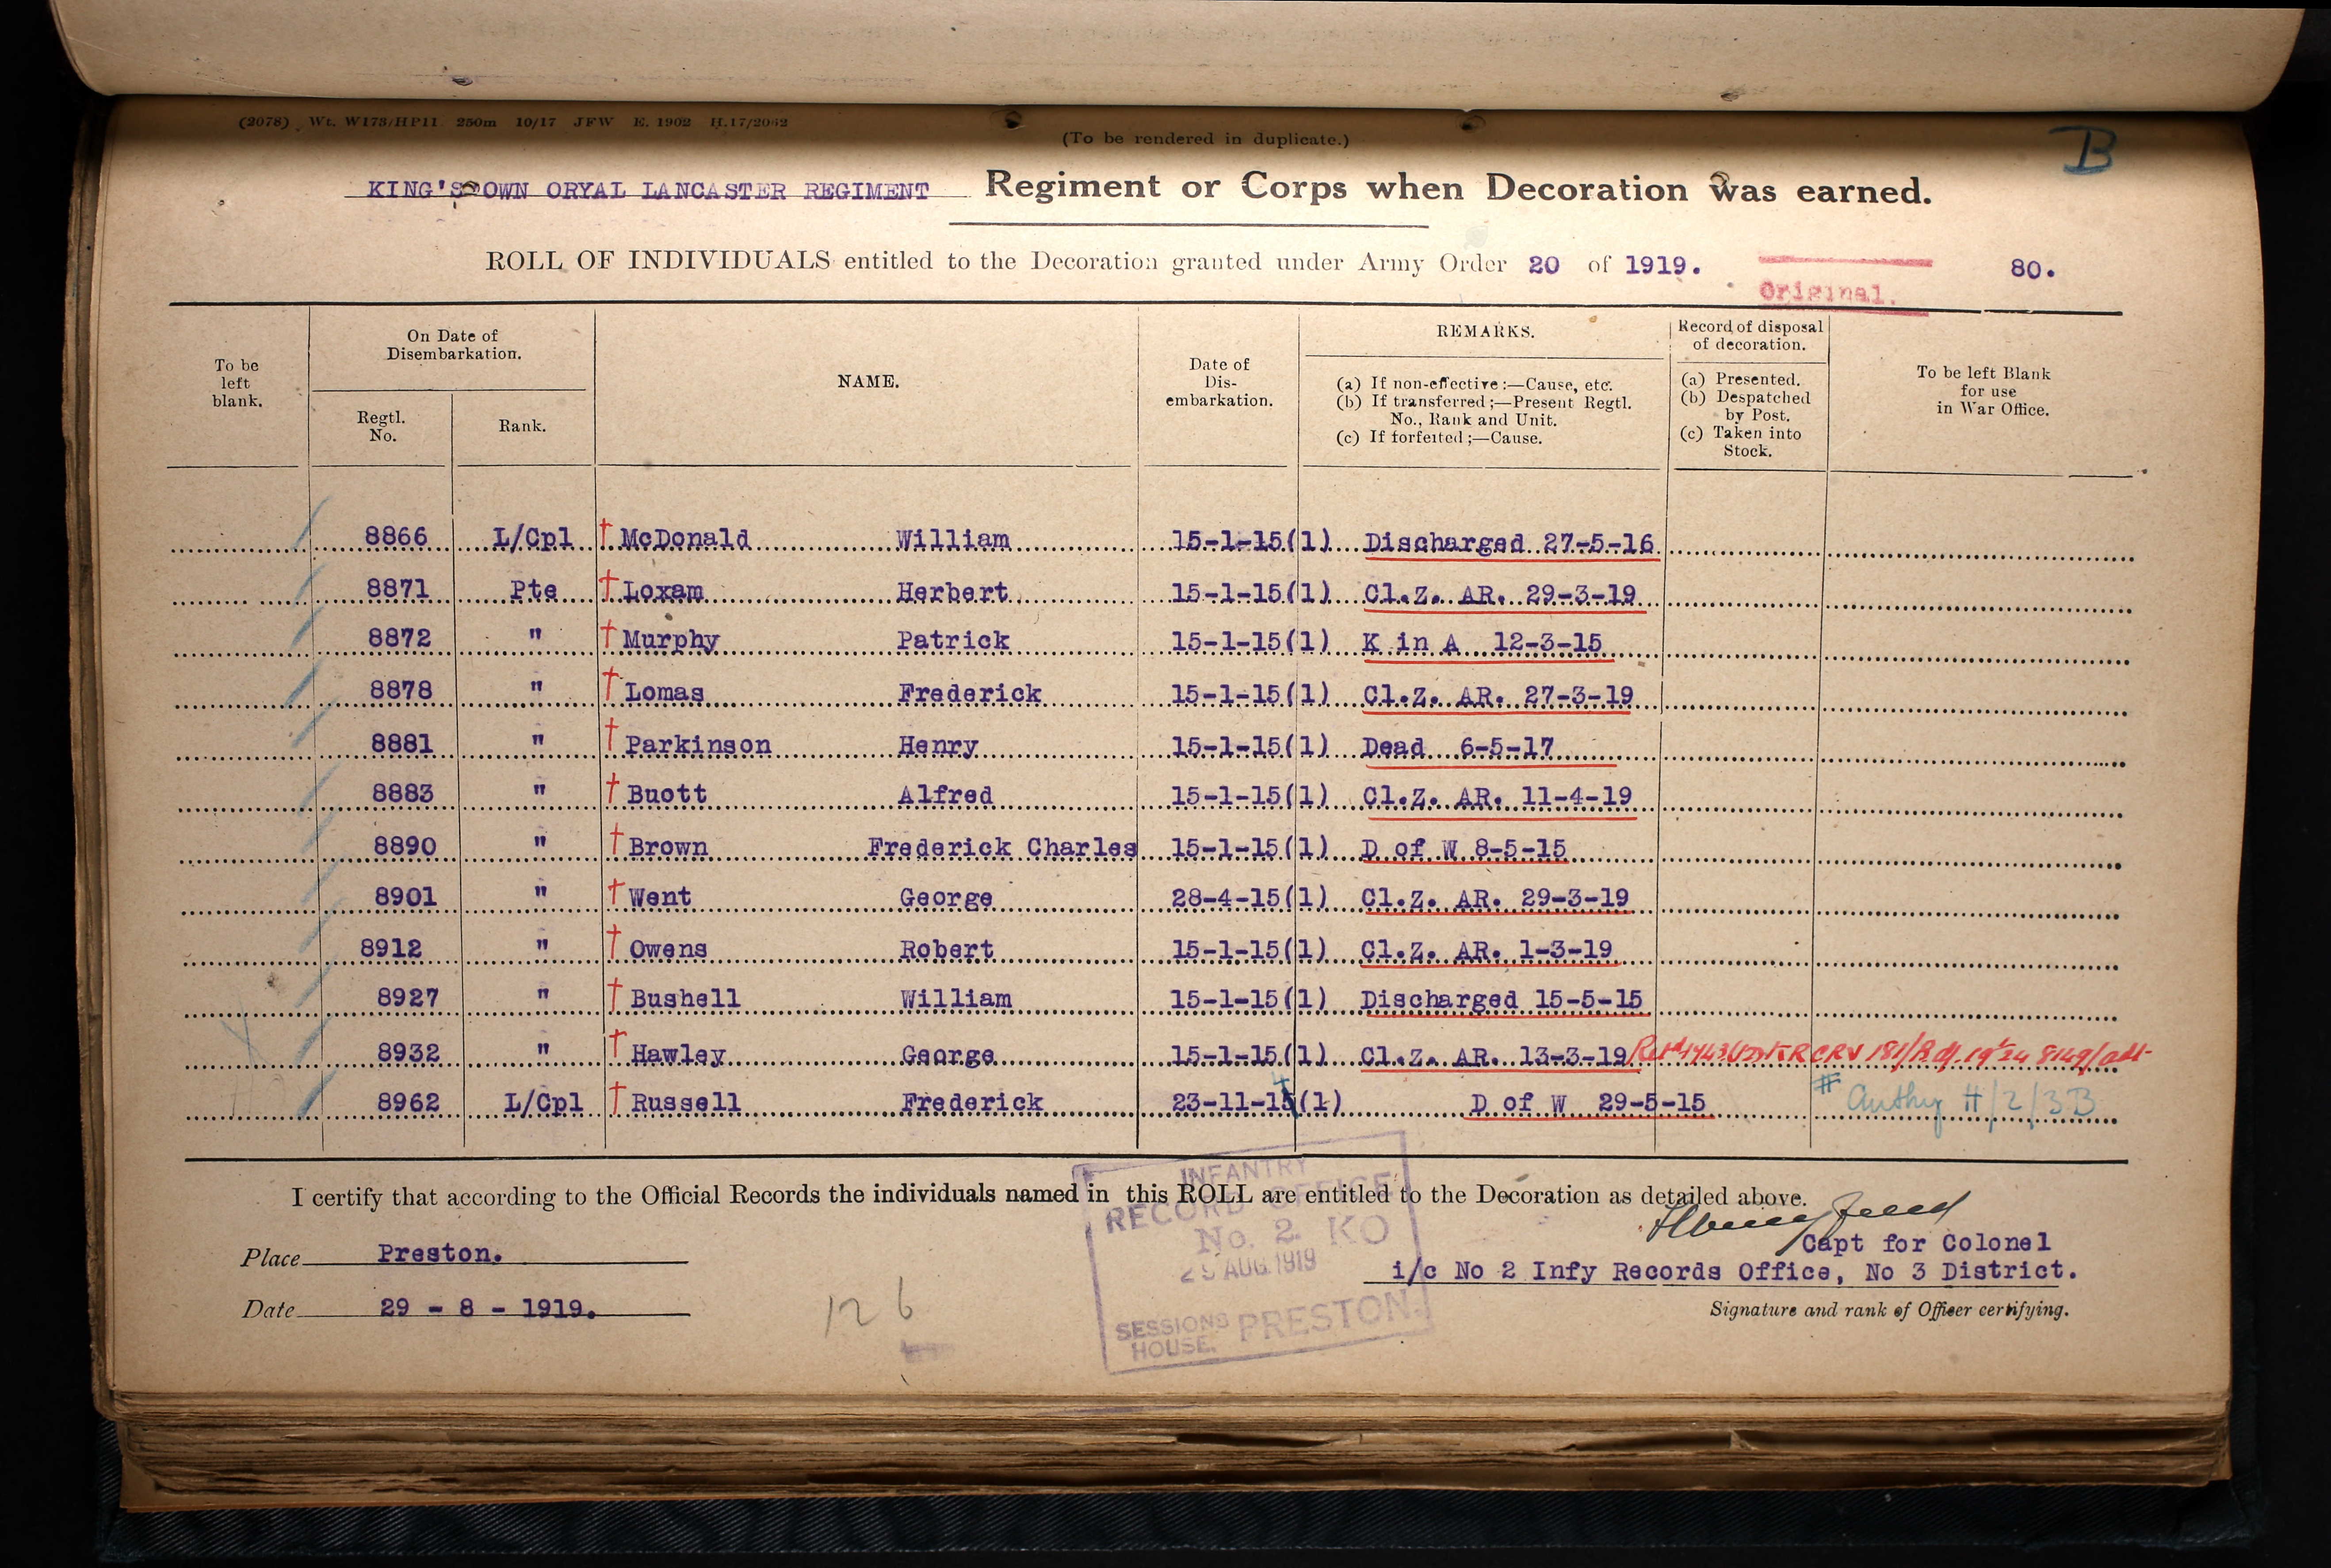 (2078) Wt. W173/HP11 250m 10/17 JFW E. 1902 H.17/2042
(To be rendered in duplicate.)
B
KING'S OWN ORYAL LANCASTER REGIMENT Regiment or Corps when Decoration was earned.
ROLL OF INDIVIDUALS entitled to the Decoration granted under Army Order 20 of 1919. 80.
Original.
To be left blank.
On Date of Disembarkation.
Regtl. No.
Rank.
NAME.
Date of Dis-embarkation.
REMARKS.
(a) If non-effective:—Cause, etc.
(b) If transferred;—Present Regtl. No., Rank and Unit.
(c) If forfeited;—Cause.
Record of disposal of decoration.
(a) Presented.
(b) Despatched by Post.
(c) Taken into Stock.
To be left Blank for use in War Office.
8866 L/Cpl † McDonald William 15-1-15(1) Discharged 27-5-16
8871 Pte † Loxam Herbert 15-1-15(1) Cl.Z. AR. 29-3-19
8872 " † Murphy Patrick 15-1-15(1) K in A 12-3-15
8878 " † Lomas Frederick 15-1-15(1) Cl.Z. AR. 27-3-19
8881 " † Parkinson Henry 15-1-15(1) Dead 6-5-17
8883 " † Buott Alfred 15-1-15(1) Cl.Z. AR. 11-4-19
8890 " † Brown Frederick Charles 15-1-15(1) D of W 8-5-15
8901 " † Went George 28-4-15(1) Cl.Z. AR. 29-3-19
8912 " † Owens Robert 15-1-15(1) Cl.Z. AR. 1-3-19
8927 " † Bushell William 15-1-15(1) Discharged 15-5-15
8932 " † Hawley George 15-1-15(1) Cl.Z. AR. 13-3-19
8962 L/Cpl † Russell Frederick 23-11-14(1) D of W 29-5-15 # Authy H/2/3B
I certify that according to the Official Records the individuals named in this ROLL are entitled to the Decoration as detailed above.
INFANTRY
RECORD OFFICE
No. 2. KO
29 AUG 1919
SESSIONS HOUSE. PRESTON.
Place Preston.
Capt for Colonel
i/c No 2 Infy Records Office, No 3 District.
Date 29 - 8 - 1919.
Signature and rank of Officer certifying.
126